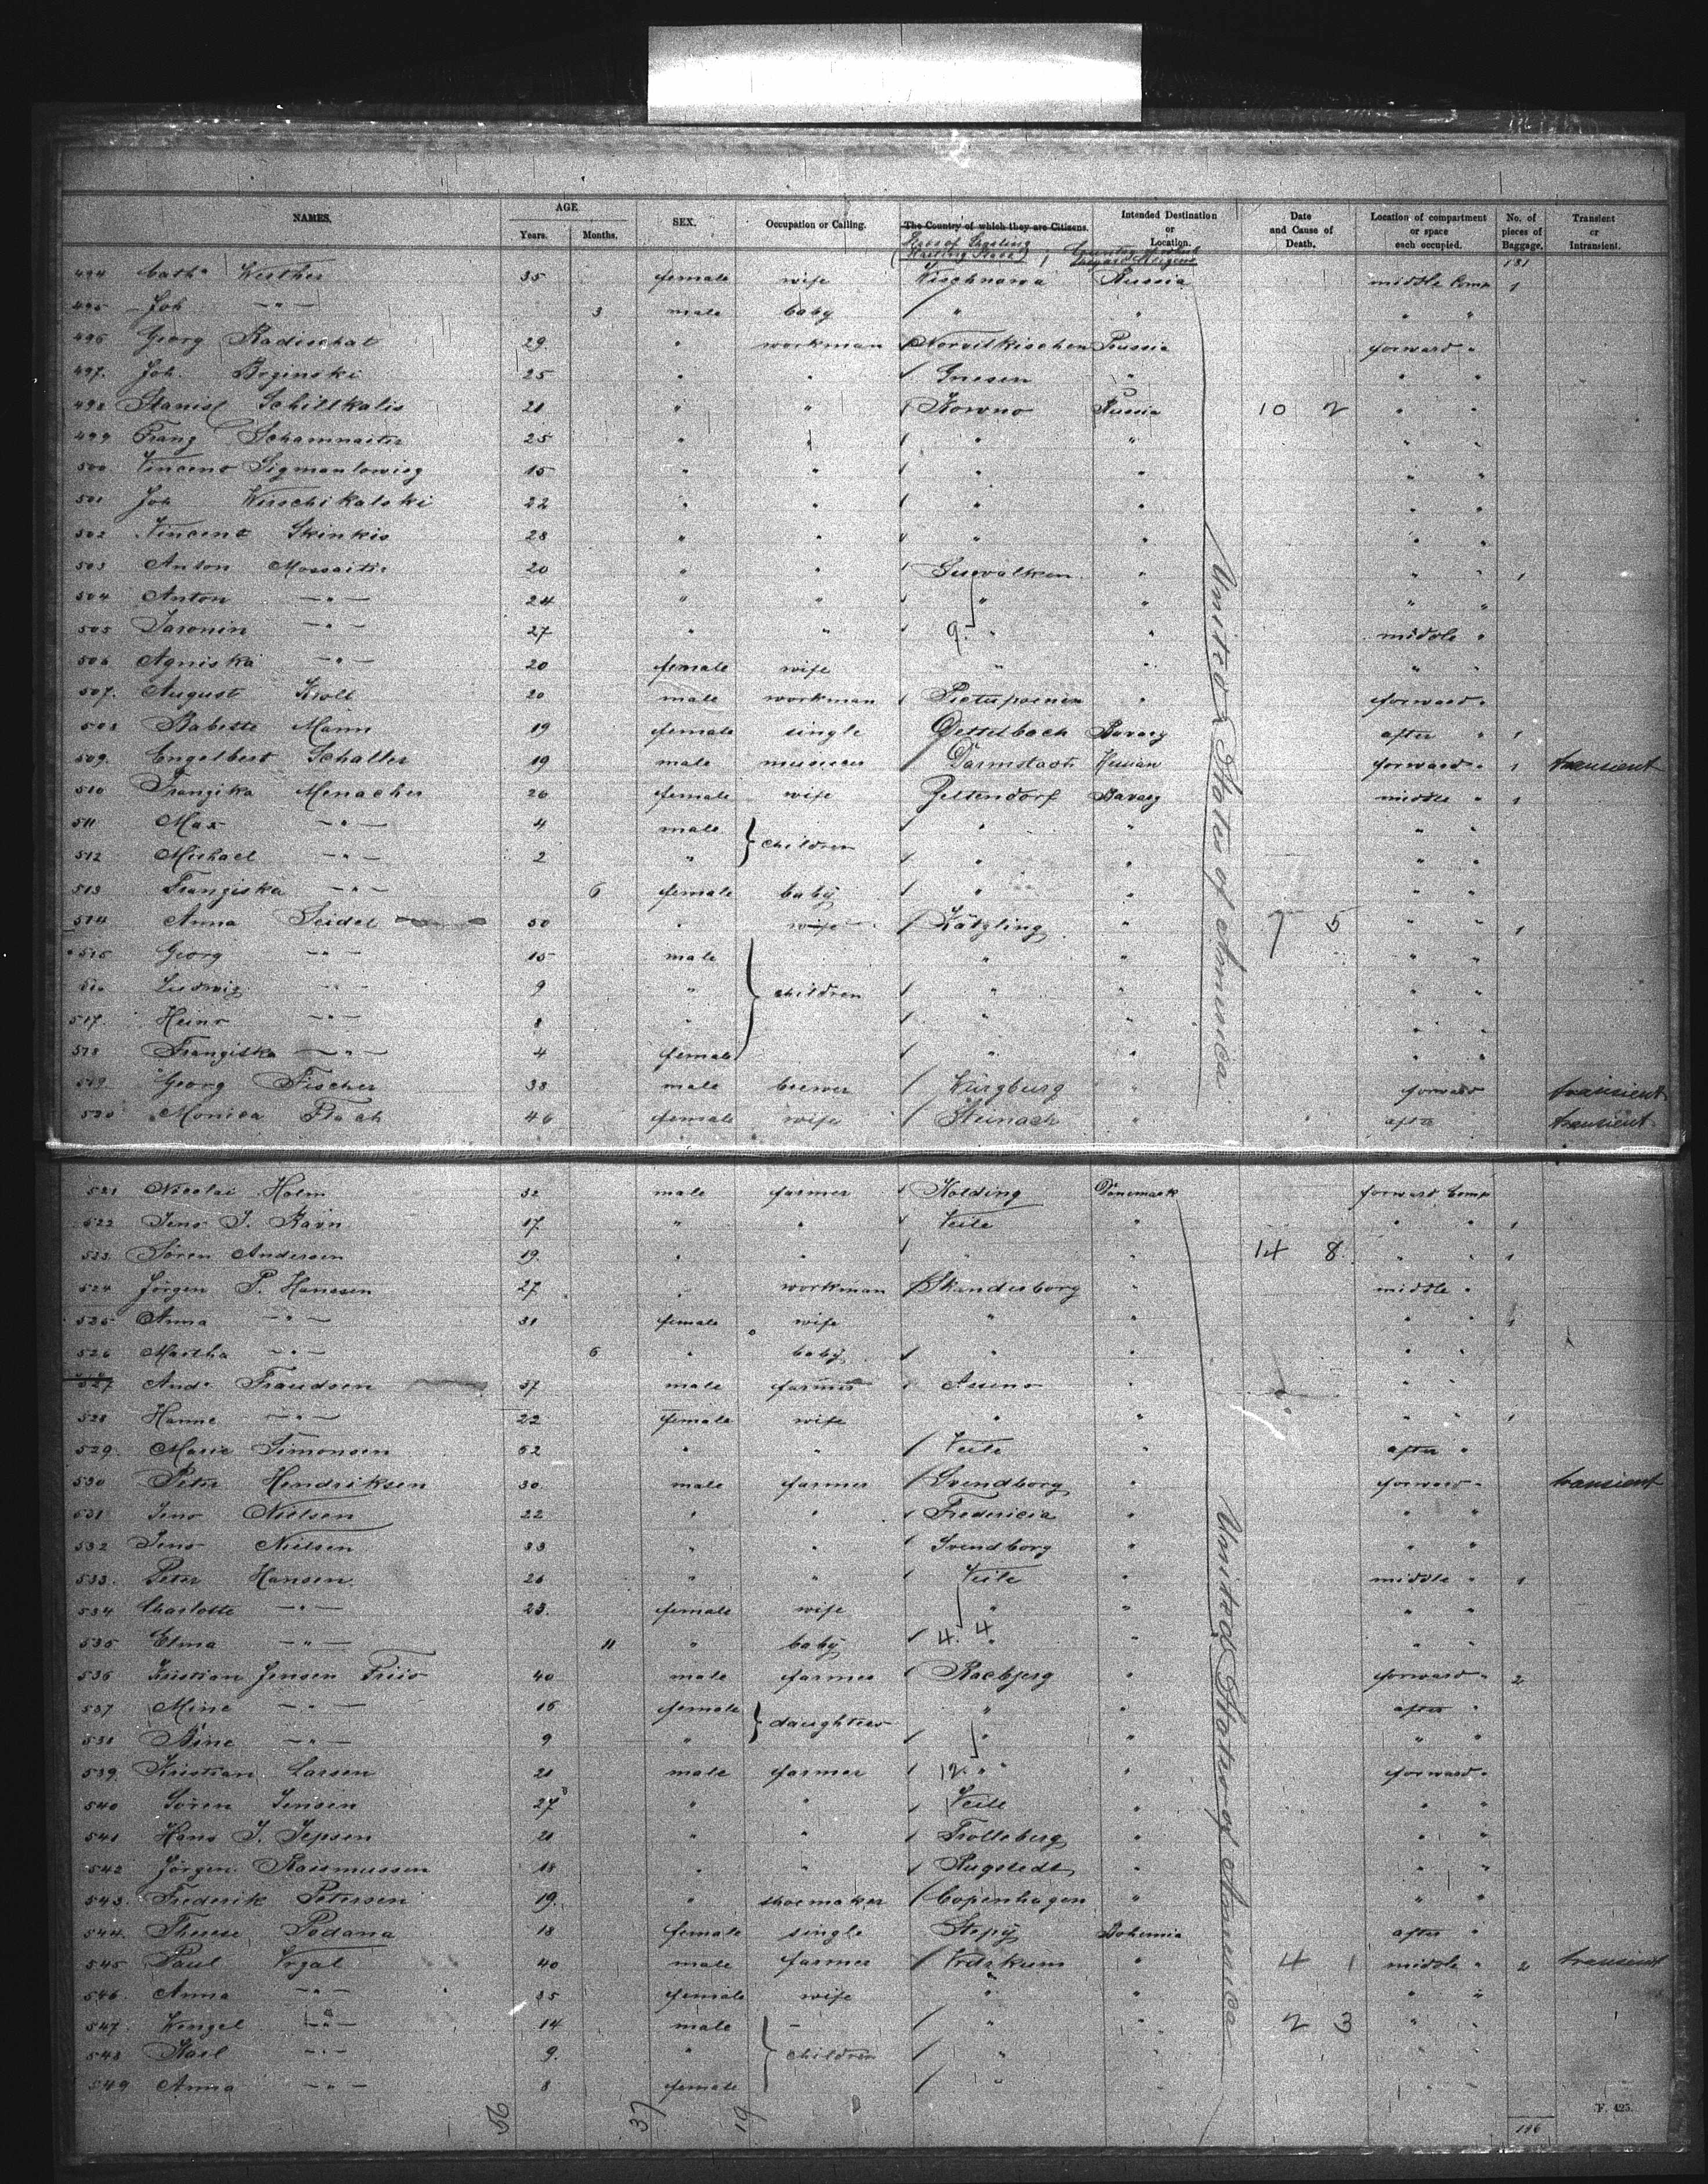 2
NAMES. AGE Years. Months. SEX. Occupation or Calling. The Country of which they are Citizens. Intended Destination or Location. Date and Cause of Death. Location of compartment or space each occupied. No. of pieces of Baggage. Transient or Intransient.
181
494 Cath. Werther 35 female wife Wischnowa Russia middle Comp 1
495 Joh — " — 3 male baby " " " "
496 Georg Radischat 29 " workman Prussia forward "
497. Joh. Beginski 25 " " Gnesen " " "
498 Stanisl Schiltkalis 21 " " Kowno Russia 10 2 " "
499 Franz Schamnaitis 25 " " " " " "
500 15 " " " " " "
501 Joh Wischikalski 22 " " " " " "
502 Vincent Skinkis 28 " " " " " "
503 Anton Mossaitis 20 " " Suwalken " " " 1
504 Anton — " — 24 " " " " " "
505 — " — 27 " " 9. " " middle "
506 Agniska — " — 20 female wife " " " "
507. August Kroll 20 male workman " forward "
508 Babette Mann 19 female single Dettelbach Bavary after " 1
509. Engelbert Schalter 19 male Darmstadt Hessian forward " 1 transient
510 Franzika Menacher 26 female wife Zeltendorf Bavary middle " 1
511 Max — " — 4 male children " " " "
512 Michael — " — 2 " " " " "
513 Franziska — " — 6 female baby " " " "
514 Anna Seidel 50 " wife Kötzling " 7 5 " " 1
515 Georg — " — 15 male " " " "
516 Ludwig — " — 9 " children " " " "
517. Heinr — " — 8 " " " " "
518 Franziska — " — 4 female " " " "
519 Georg Fischer 38 male brewer Würzburg forward transient
520 Monica Flach 46 female wife Steinach " after transient
United States of America
521 Nicolai Holm 32 male farmer Kolding Denemark forward Comp
522 Jens J. Ravn 17 " " Veile " " " 1
523 Sören Andersen 19. " " " " 14 8. " " 1
524 Jörgen P. Hansen 27 " workman Skanderborg " middle "
525 Anna — " — 31 female wife " " " " 1
526 Martha — " — 6 " baby " " " "
527 And. Fraudsen 37 male farmer Assens " " "
528 Hanne — " — 22 female wife " " " " 1
529. Marie Simonsen 52 " " Veile " after "
530 Peter Hendriksen 30 male farmer Svendborg " forward " transient
531 Jens Nielsen 22 " " Fredericia " " "
532 Jens Nielsen 33 " " Svendborg " " "
533. Peter Hansen. 26 " " Veile " middle " 1
534 Charlotte — " — 23. female wife " " " "
535 Elma — " — 11 " baby 4. 4 " " " "
536 Kristian Jensen Friis 40 male farmer " forward " 2
537 Mine — " — 16 female daughters " " after "
538 Stine — " — 9 " " " " "
539. Kristian Larsen 21 male farmer 12. " " forward "
540 Sören Jensen 27 " " Veile " " "
541 Hans J. Jepsen 21 " " Trolleberg " " "
542 Jörgen Rasmussen 18 " " Rugstedt " " "
543. Frederik Petersen 19. " shoemaker Copenhagen " " "
544. Therese Podana 18 female single Bohemia after "
545 Paul 40 male farmer " 4 1 middle " 2 transient
546. Anna — " — 35 female wife " " " "
547. Wenzel — " — 14 male — " " 2 3 " "
548 Karl — " — 9. " children " " " "
549 Anna — " — 8 female " " " "
United States of America
56 37 19
F. 425.
196